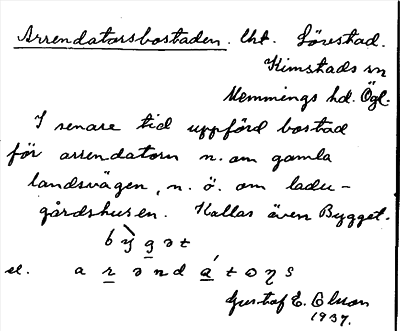 Arrendatorsbostaden. Lht. Lövestad.
Kimstads sn
Memmings hd. Ögl.
I senare tid uppförd bostad
för arrendatorn n. om gamla
landsvägen, n. ö. om ladu-
gårdshusen. Kallas även Bygget.
bỳgət
el. a rəndátωηs
Gustaf E. Olsson
1937.